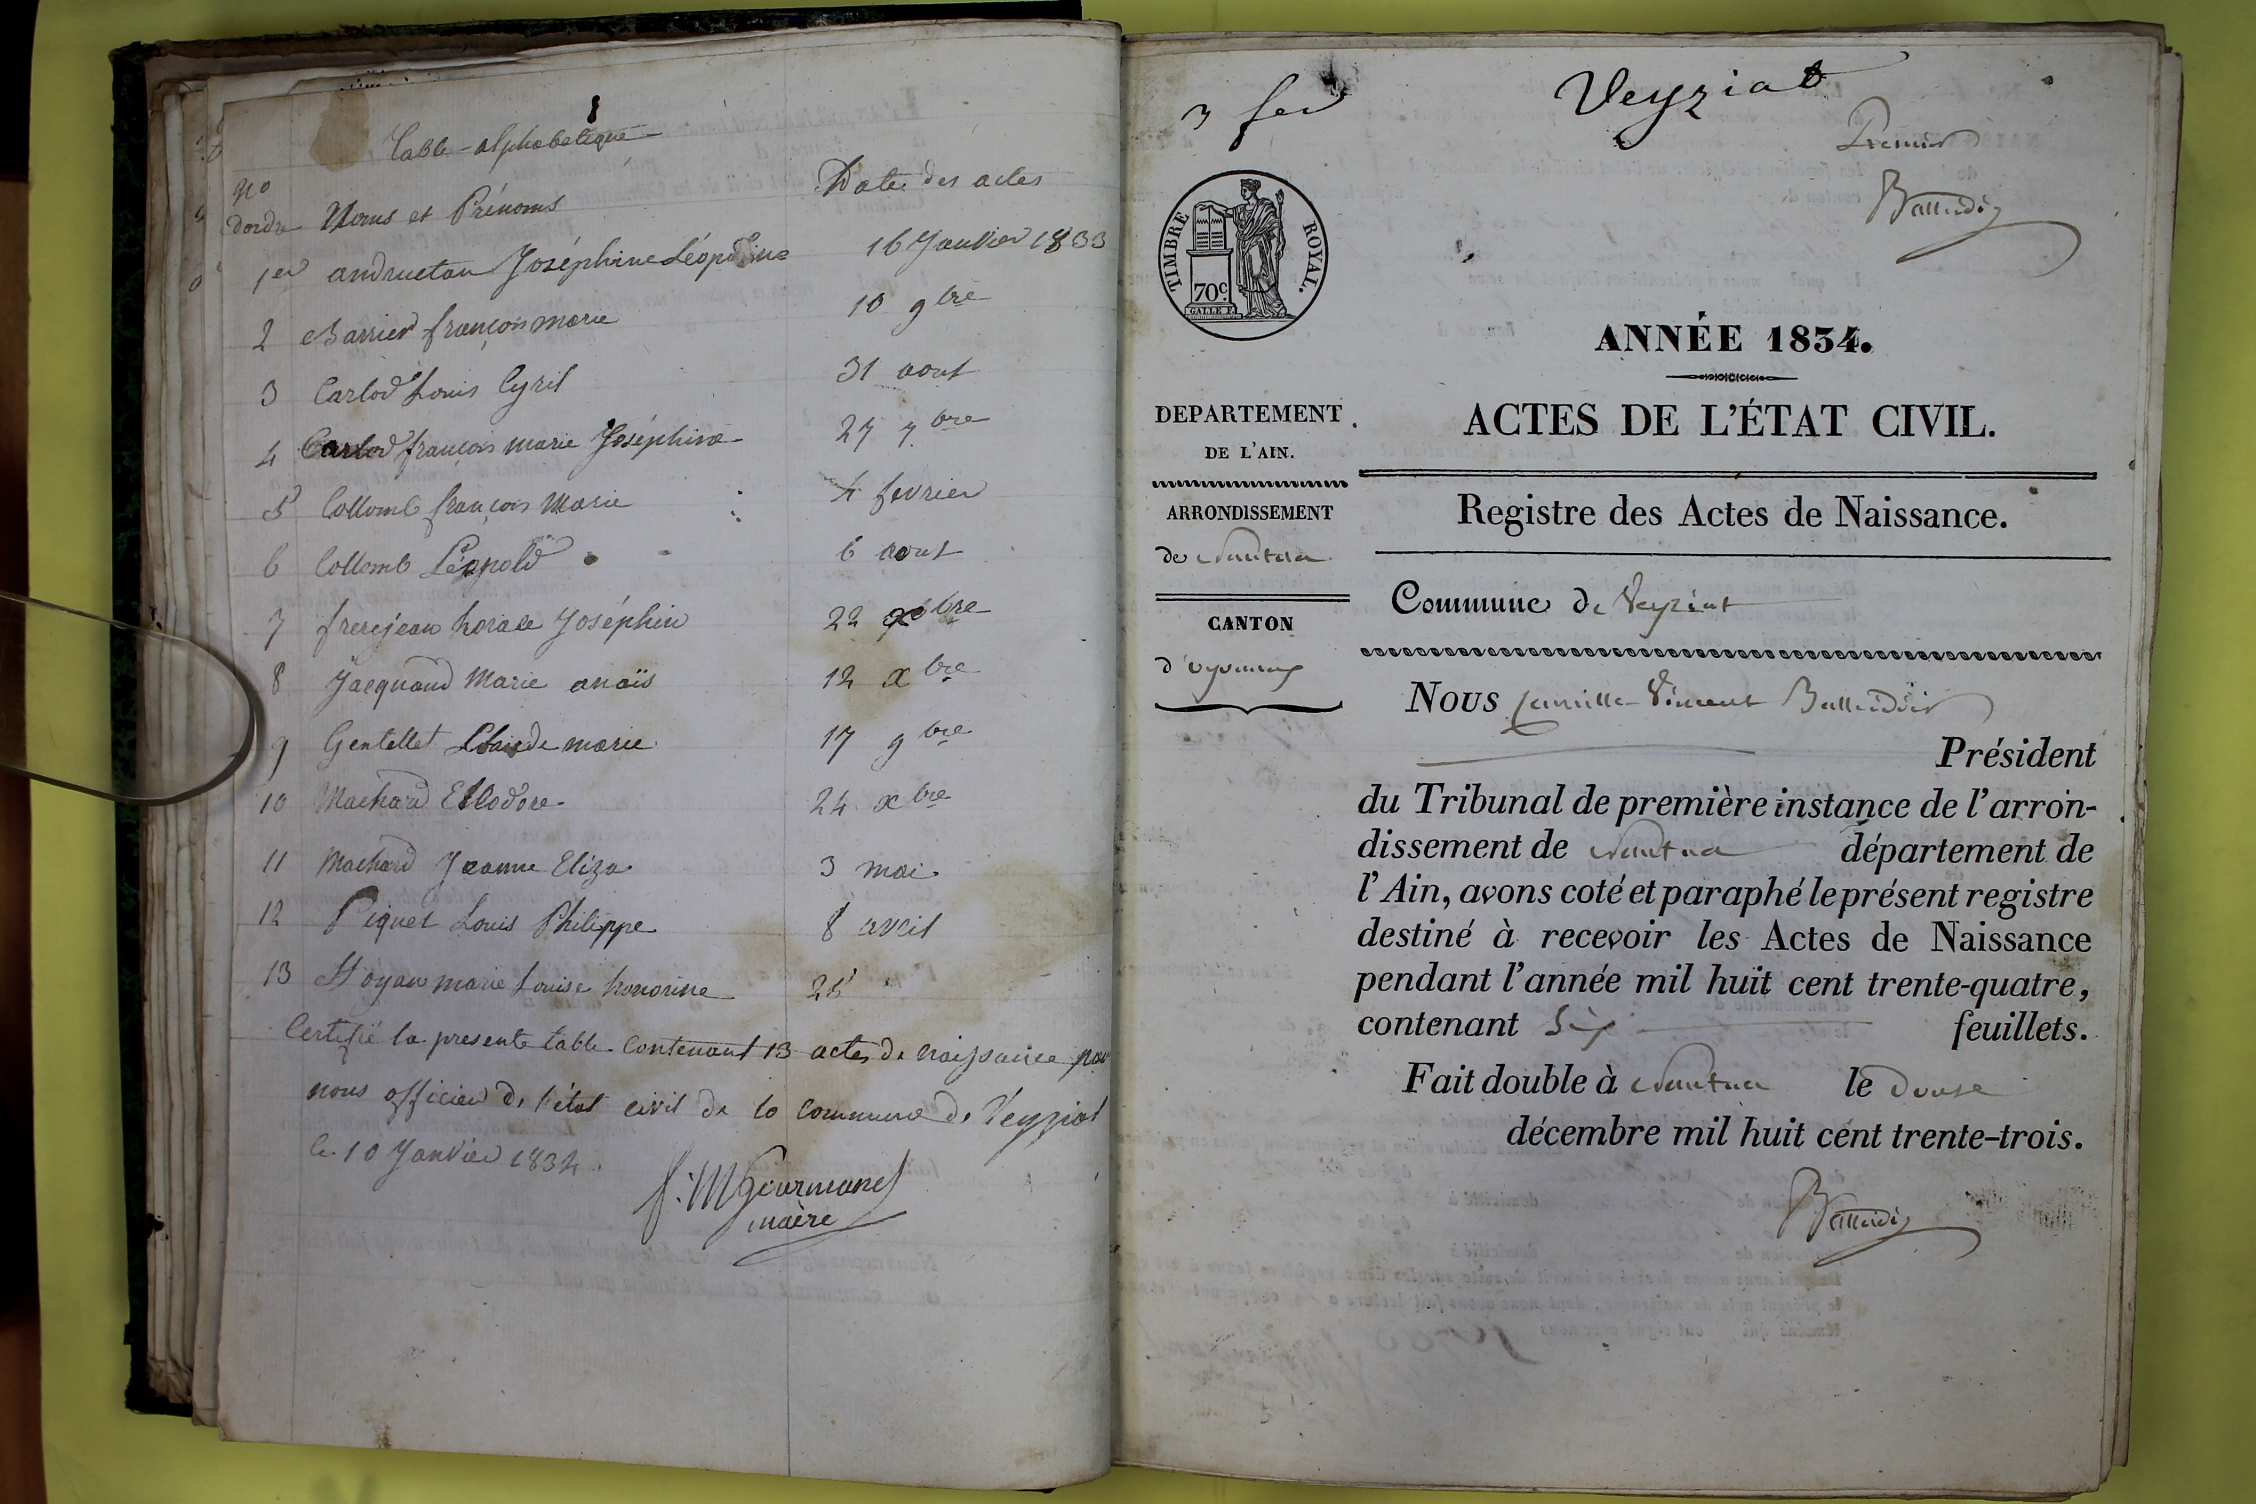 Table alphabetique
No
Dordre Noms et Prénoms Date des actes
1er andruetan Joséphine Léopoldine 16 Janvier 1833
2 Barrier françois marie 10 9bre
3 Carlod Louis Cyril 31 aout
4 Carlod françois marie Joséphine 27 7bre
5 Collomb françois Marie 4 fevrier
6 Collomb Léopold 6 aout
7 frerejean horace Joséphin 22 xbre
8 Jacquand Marie anaïs 12 xbre
9 Gentellet Claude marie 17 9bre
10 Machard Eliodore 24 xbre
11 Machard Jeanne Eliza 3 mai
12 Piquet Louis Philippe 8 avril
13 marie Louise honorine 25 "
Certifié la presente table contenant 13 actes de naissance par
nous officier de l'état civil de la commune de Veyziat
le 10 Janvier 1834.
f. M Gourmand
maère
3 fer Veyziat
Premier
Ballaidier
TIMBRE ROYAL.
70c.
GALLE F.
ANNÉE 1834.
DEPARTEMENT
DE L'AIN.
ACTES DE L'ÉTAT CIVIL.
ARRONDISSEMENT
de Nantua
Registre des Actes de Naissance.
CANTON
d'oyonnax
Commune de Veyziat
Nous Camille Vincent
Président
du Tribunal de première instance de l'arron-
dissement de Nantua département de
l'Ain, avons coté et paraphé le présent registre
destiné à recevoir les Actes de Naissance
pendant l'année mil huit cent trente-quatre,
contenant Six feuillets.
Fait double à Nantua le douse
décembre mil huit cent trente-trois.